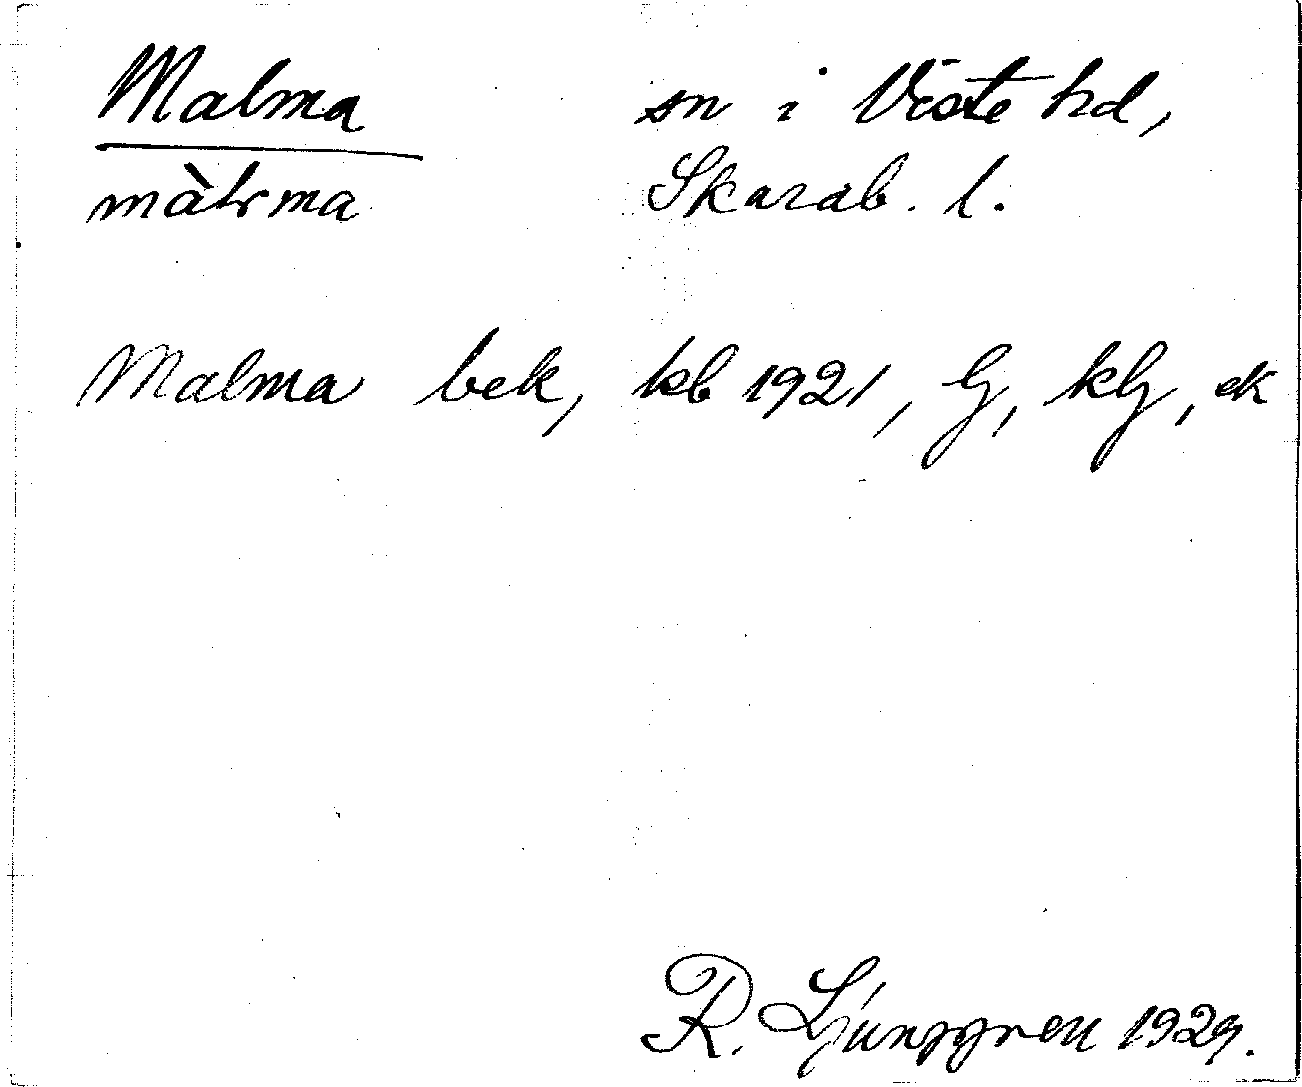 Malma sn i Viste hd,
màlma Skarab. l.
Malma bek, kb 1921, G, kG, ek
R. Ljunggren 1929.